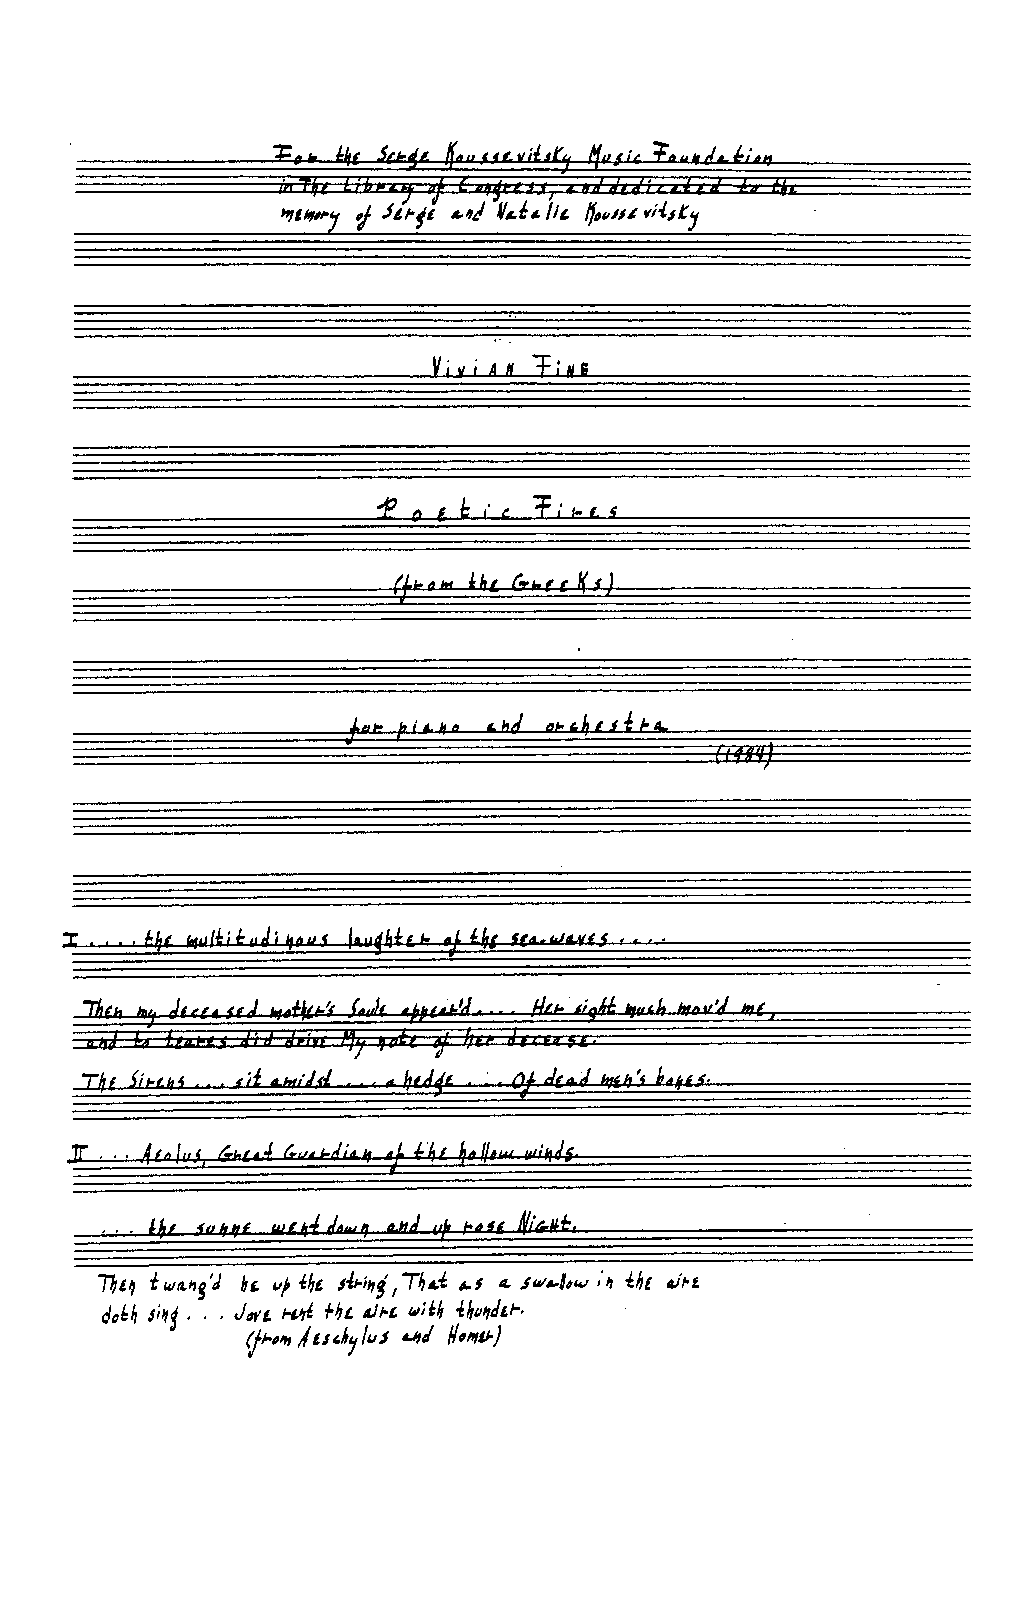 For the Serge Koussevitsky Music Foundation
in The Library of Congress, and dedicated to the
memory of Serge and Natalie Koussevitsky
Vivian Fine
Poetic Fires
(from the Greeks)
for piano and orchestra
(1984)
I .... the multitudinous laughter of the sea-waves ....
Then my deceased mother's Soule appear'd .... Her sight much mov'd me,
and to teares did drive My note of her decease.
The Sirens ... sit amidst ... a hedge ... Of dead men's bones.
II ... Aeolus, Great Guardian of the hollow winds.
... the sunne went down and up rose Night.
Then twang'd he up the string, That as a swallow in the aire
doth sing ... Jove rent the aire with thunder.
(from Aeschylus and Homer)